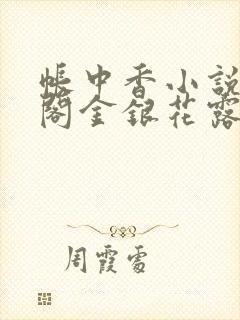 帳中香小説
閣金銀花露
周霞雲